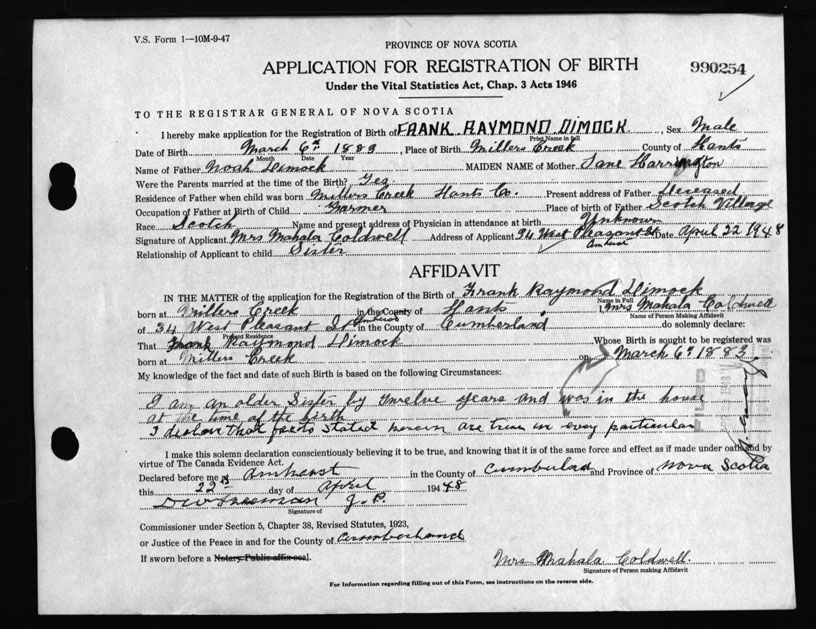 V.S. Form 1—10M-9-47
PROVINCE OF NOVA SCOTIA
APPLICATION FOR REGISTRATION OF BIRTH
990254
Under the Vital Statistics Act, Chap. 3 Acts 1946
TO THE REGISTRAR GENERAL OF NOVA SCOTIA
I hereby make application for the Registration of Birth of FRANK RAYMOND DIMOCK, Sex Male
Print Name in full
Date of Birth March 6th 1883, Place of Birth Millers Creek County of Hants
Month Date Year
Name of Father Noah Dimock MAIDEN NAME of Mother Jane Harrington
Were the Parents married at the time of the Birth? Yes
Residence of Father when child was born Millers Creek Hants Co. Present address of Father Deceased
Occupation of Father at Birth of Child Farmer Place of birth of Father Scotch Village
Race Scotch Name and present address of Physician in attendance at birth Unknown
Signature of Applicant Mrs Mahala Coldwell Address of Applicant 34 West Pleasant St Date April 22 1948
Relationship of Applicant to child Sister
AFFIDAVIT
IN THE MATTER of the application for the Registration of the Birth of Frank Raymond Dimock
Name in Full
born at Millers Creek in the County of Hants, I, Mrs Mahala Coldwell
Name of Person Making Affidavit
of 34 West Pleasant St Amherst in the County of Cumberland do solemnly declare:
Present Residence
That Frank Raymond Dimock Whose Birth is sought to be registered was
born at Millers Creek on March 6th 1883.
My knowledge of the fact and date of such Birth is based on the following Circumstances:
I am an older Sister by twelve years and was in the house
at the time of the birth
I declare that facts stated herein are true in every particular
FILED
I make this solemn declaration conscientiously believing it to be true, and knowing that it is of the same force and effect as if made under oath and by
virtue of The Canada Evidence Act.
Declared before me at Amherst in the County of Cumberland and Province of Nova Scotia
this 22nd day of April 1948
Freeman J.P.
Signature of
Commissioner under Section 5, Chapter 38, Revised Statutes, 1923,
or Justice of the Peace in and for the County of Cumberland
If sworn before a Notary Public affix seal.
Mrs Mahala Coldwell.
Signature of Person making Affidavit
For Information regarding filling out of this Form, see instructions on the reverse side.